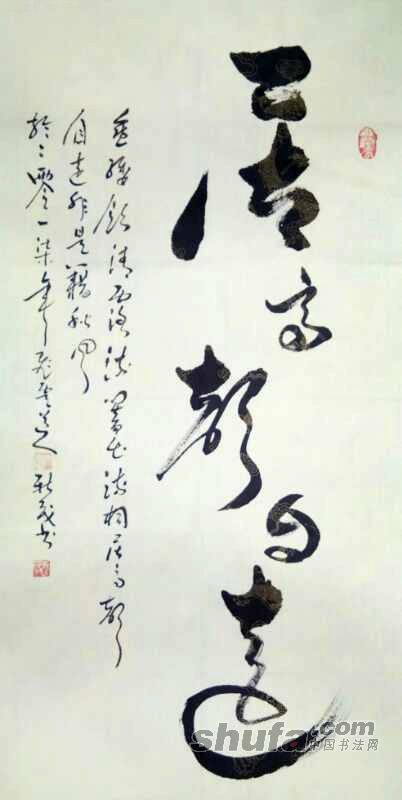 居高聲自遠
垂緌飲清露流響出疏桐居高聲
自遠非是藉秋風
於二零一柒年
書
shufa.com
中国书法网